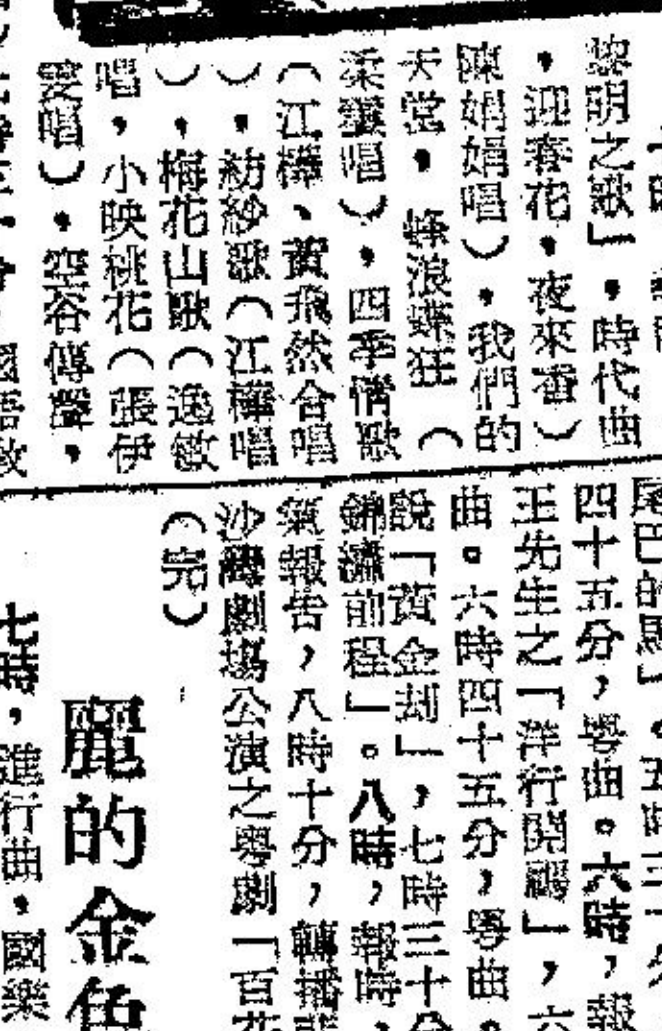 黎明之歌」，時代曲
，迎春花，夜來香）
陳娟娟唱），我們的
天堂，蜂浪蝶狂（
柔雲唱），四季情歌
（江樺、黃飛然合唱
），紡紗歌（江樺唱
），梅花山歌（逸敏
唱，小映桃花（張伊
雯唱），空谷傳聲，
尾巴的馬」。五時三十分
四十五分，粵曲。六時，報
王先生之「洋行開幕」，六
曲。六時四十五分，粵曲。
說「黃金刦」，七時三十分
錦繡前程」。八時，報時，
氣報告，八時十分，轉播
沙灣劇場公演之粵劇「百花
（完）
麗的金色
七時，進行曲，國樂